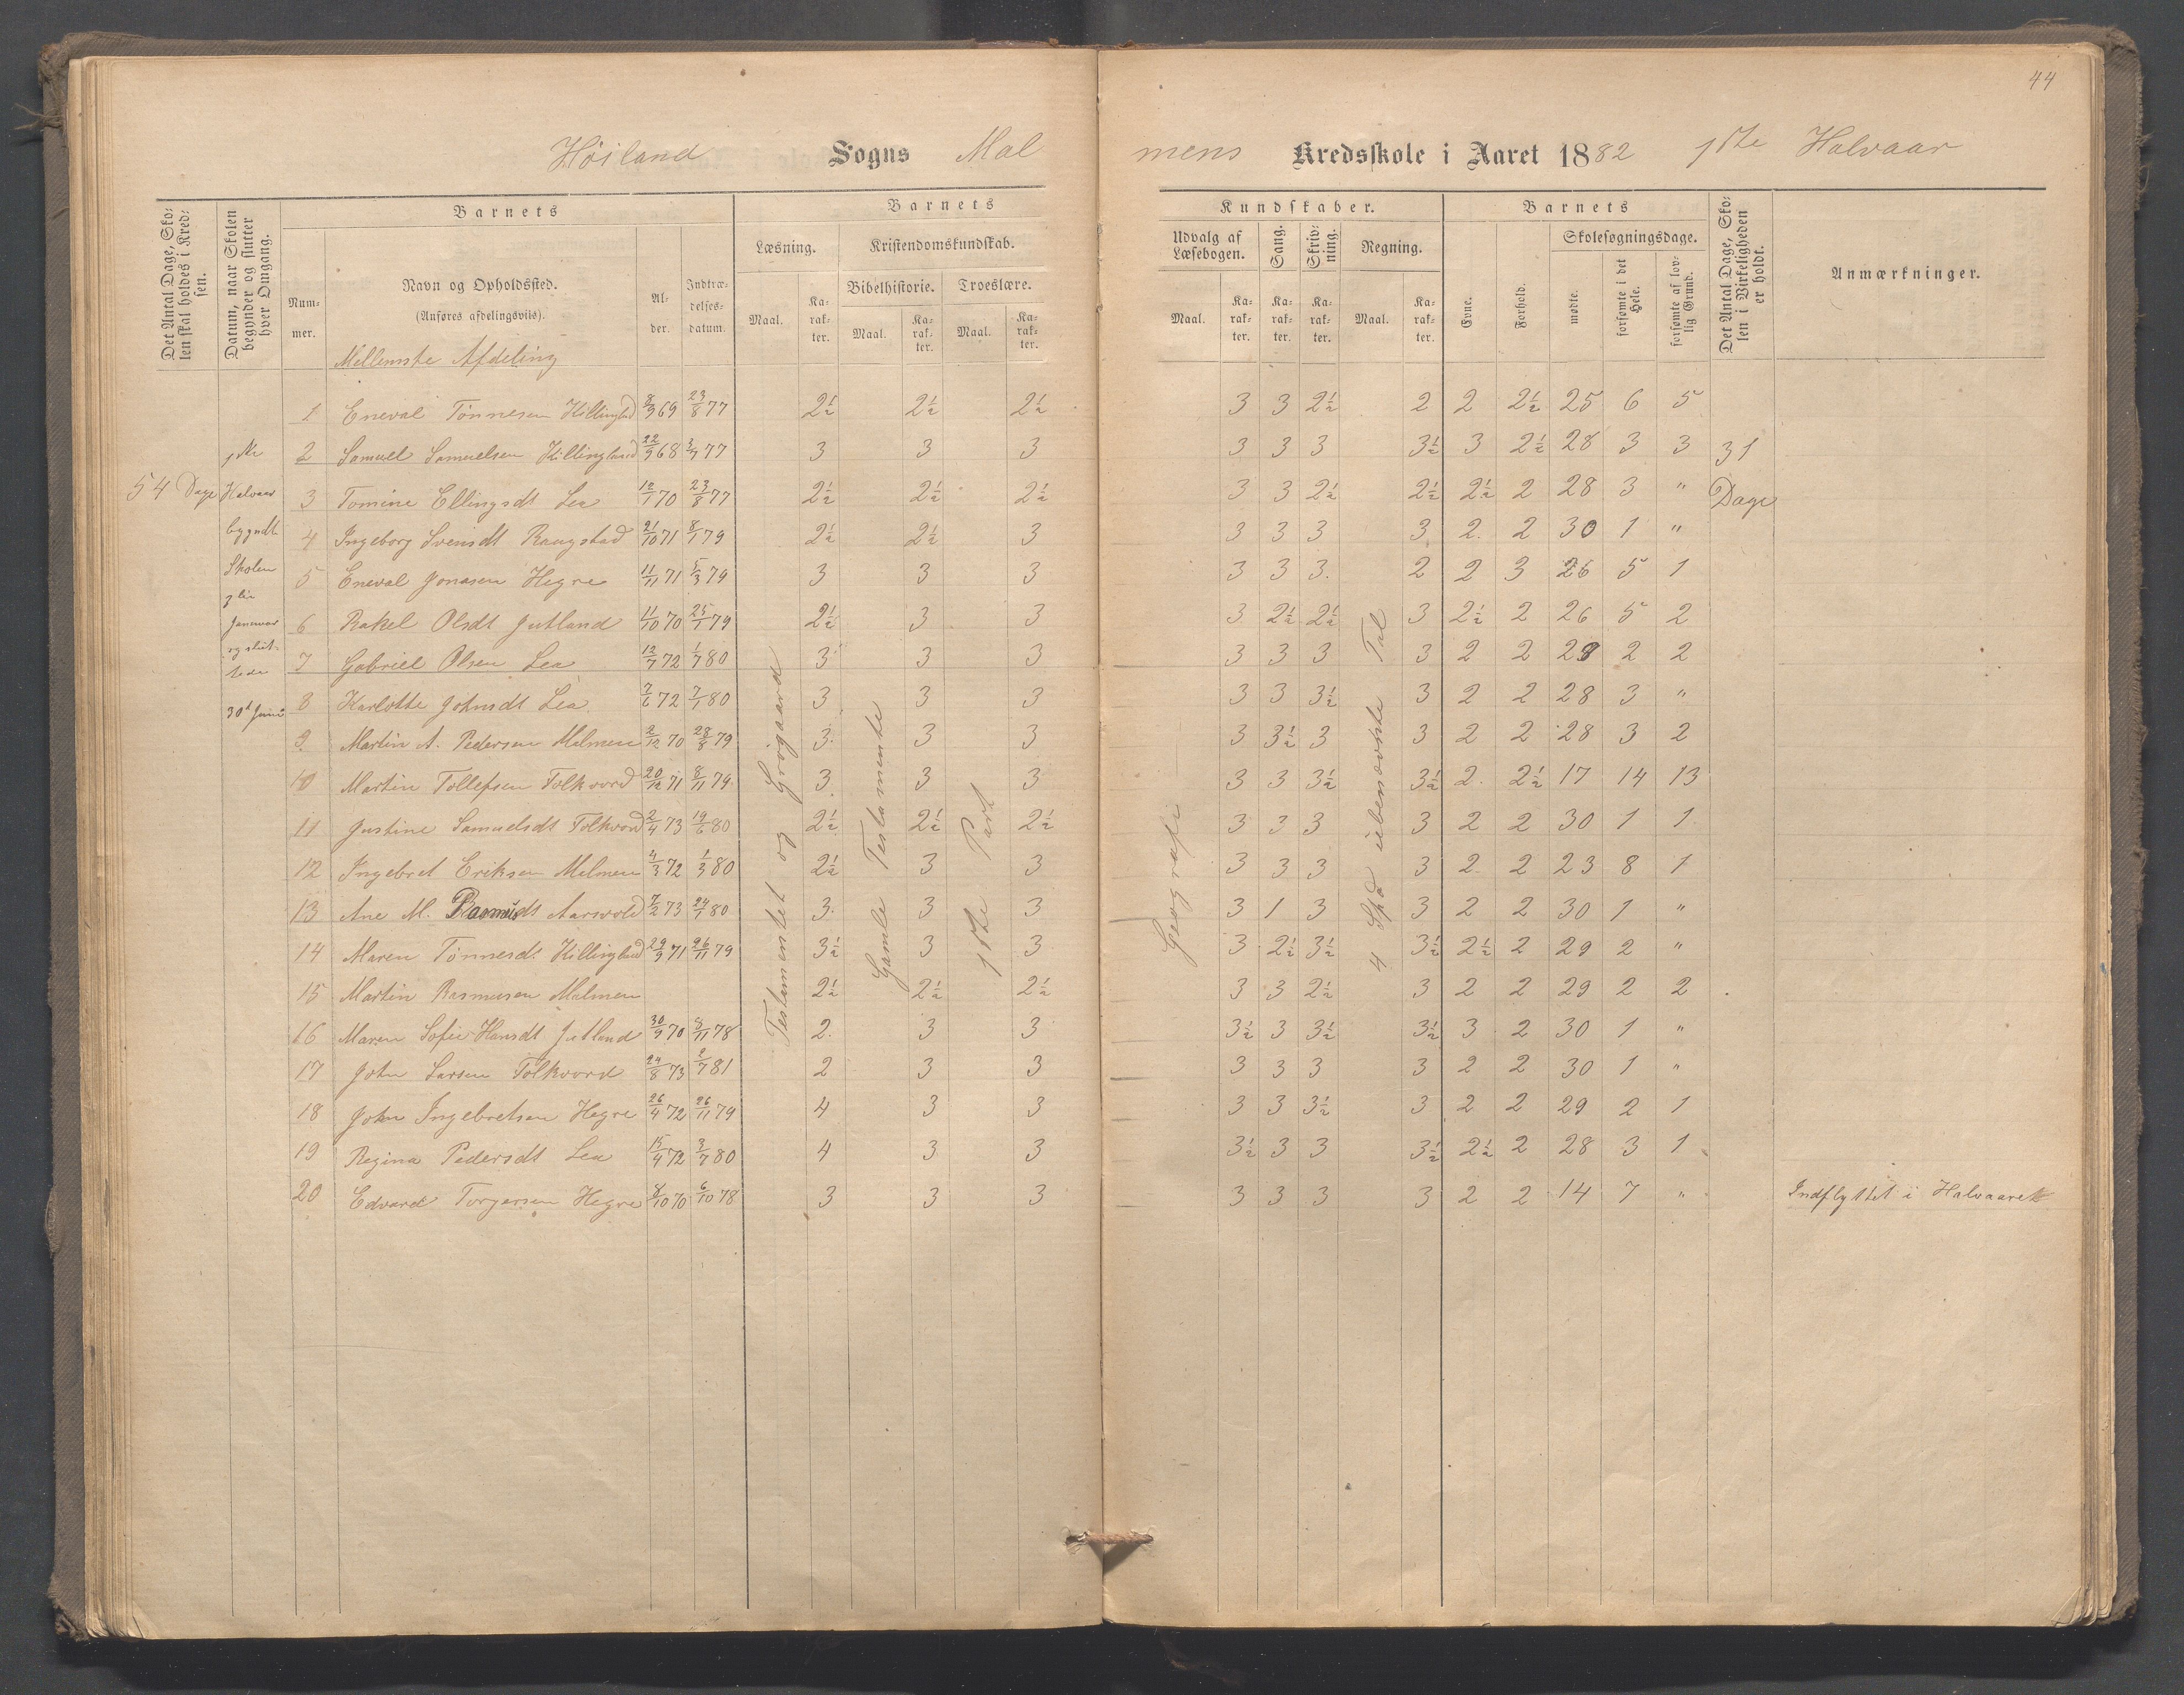 44
Höiland Sogns Malmens Kredsskole i Aaret 1882 1ste Halvaar
Det Antal Dage, Skolen skal holdes i Kredsen.
Datum, naar Skolen begynder og slutter hver Omgang.
Barnets
Nummer.
Navn og Opholdssted.
(Anføres afdelingsviis).
Alder.
Indtrædelsesdatum.
Barnets Kundskaber.
Læsning.
Maal. Karakter.
Kristendomskundskab.
Bibelhistorie. Troeslære.
Maal. Karakter. Maal. Karakter.
Udvalg af Læsebogen.
Maal. Karakter.
Sang. Karakter.
Skrivning. Karakter.
Regning.
Maal. Karakter.
Barnets
Evne. Forhold.
Skolesøgningsdage.
mødte. forsømte i det Hele. forsømte af lovlig Grund.
Det Antal Dage, Skolen i Virkeligheden er holdt.
Anmærkninger.
Mellemste Afdeling
54 Dage
1ste Halvaar bygndte Skolen Januar og sluttede 30d Juni
Testamentet og Grøgaard
Gamle Testamente
1ste Part
Geografi
4 Spd ubenævnte Tal
31 Dage
1 Eneval Tönnesen Killingland 8/3 69 23/8 77 2½ 2½ 2½ 3 3 2½ 2 2 2½ 25 6 5
2 Samuel Samuelsen Killingland 22/9 68 3/7 77 3 3 3 3 3 3 3½ 3 2½ 28 3 3
3 Tomine Ellingsdt Lea 12/1 70 23/8 77 2½ 2½ 2½ 3 3 2½ 2½ 2½ 2 28 3 "
4 Ingeborg Svensdt Raugstad 21/10 71 8/1 79 2½ 2½ 3 3 3 3 3 2 2 30 1 "
5 Eneval Jonasen Hegre 11/11 71 5/3 79 3 3 3 3 3 3 2 2 3 26 5 1
6 Rakel Olsdt Jutland 11/10 70 25/1 79 2½ 3 3 3 2½ 2½ 3 2½ 2 26 5 2
7 Gabriel Olsen Lea 12/7 72 1/7 80 3 3 3 3 3 3 3 2 2 28 2 2
8 Karlotte Johnsdt Lea 7/6 72 7/1 80 3 3 3 3 3 3½ 3 2 2 28 3 "
9 Martin A. Pedersen Malmen 2/12 70 28/8 79 3 3 3 3 3½ 3 3 2 2 28 3 2
10 Martin Tollefsen Folkvord 20/12 71 8/11 79 3 3 3 3 3 3½ 3½ 2 2½ 17 14 13
11 Justine Samuelsdt Folkvord 2/4 73 19/6 80 2½ 2½ 2½ 3 3 3 3 2 2 30 1 1
12 Ingebret Eriksen Malmen 4/3 72 1/3 80 2½ 3 3 3 3 3 3 2 2 23 8 1
13 Ane M. Rasmusdt Aarsvold 7/2 73 24/1 80 3 3 3 3 1 3 3 2 2 30 1 "
14 Maren Tönnesdt Killingland 29/9 71 26/11 79 3½ 3 3 3 2½ 3½ 3½ 2½ 2 29 2 "
15 Martin Rasmusen Malmen 2½ 2½ 2½ 3 3 2½ 3 2 2 29 2 2
16 Maren Sofie Hansdt Jutland 30/9 70 8/11 78 2 3 3 3½ 3 3½ 3½ 3 2 30 1 "
17 John Larsen Folkvord 24/8 73 2/7 81 2 3 3 3 3 3 3 2 2 30 1 "
18 John Ingebretsen Hegre 26/4 72 26/11 79 4 3 3 3 3 3½ 3 2 2 29 2 1
19 Regina Pedersdt Lea 15/4 72 3/7 80 4 3 3 3½ 3 3 3½ 2½ 2 28 3 1
20 Edvard Torgersen Hegre 8/10 70 6/10 78 3 3 3 3 3 3 3 2 2 14 7 " Indflyttet i Halvaaret